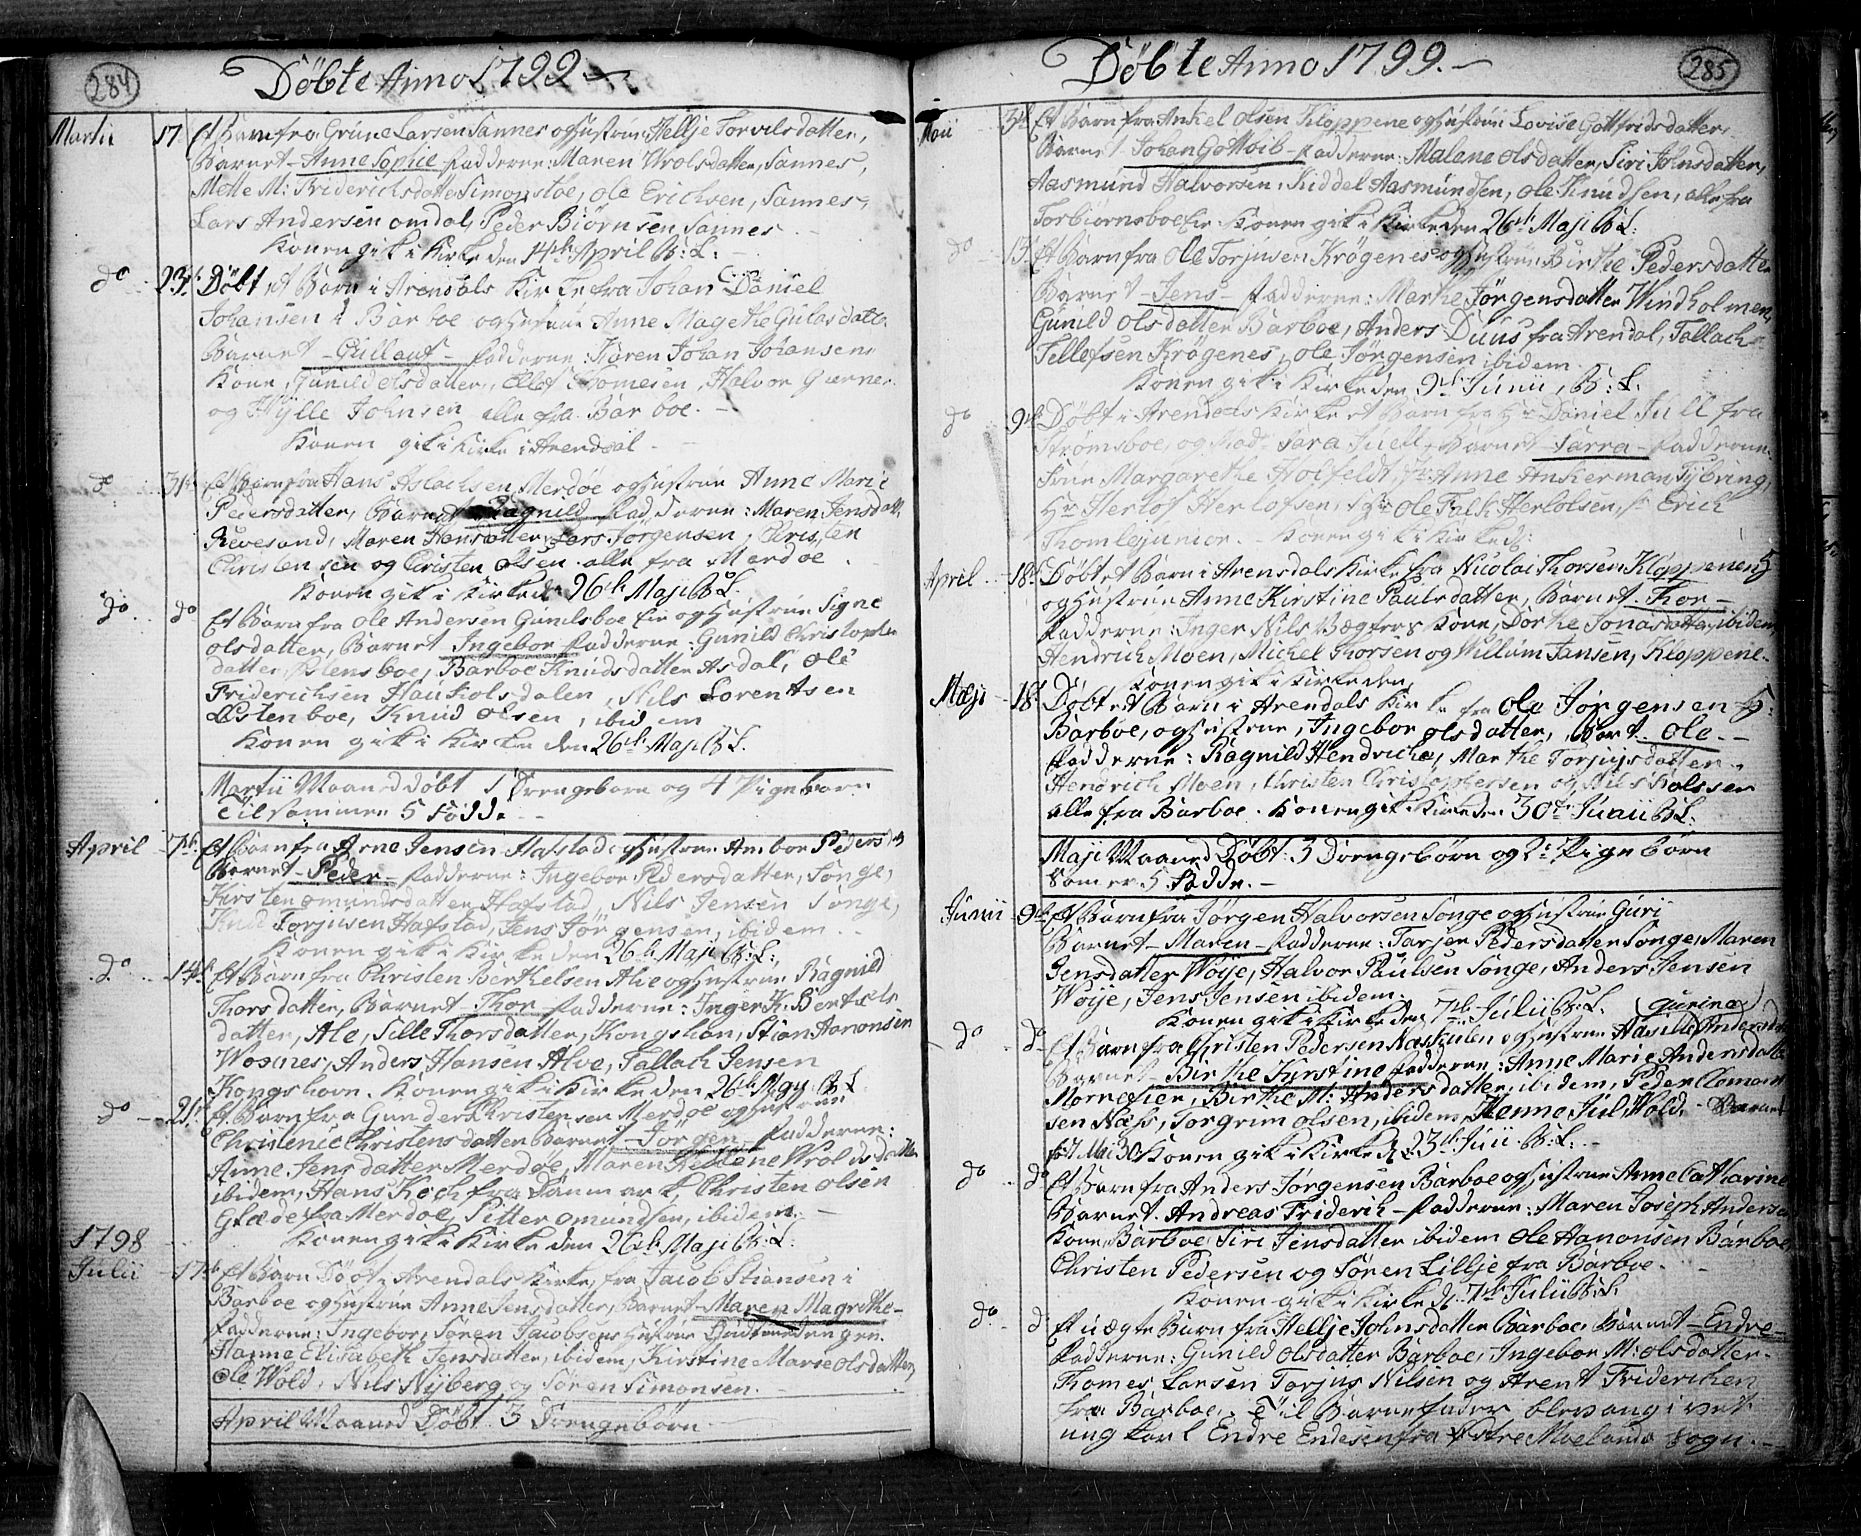 284
Døbte Anno 1799
Martii 17 Et Barn fra Grunde Larsen Sannes og Hustrue Hellje Torvilsdatter,
Barnet - Anne Sophie - Fadderne: Maren Wrolsdatter, Sannes,
Mette M: Friderichsdatter Simonstoe, Ole Erichsen, Sannes,
Lars Andersen Omdal, Peder Biørnsen Sannes
Konen gik i Kirke den 14de April B: L:
do 23de Døbt et Barn i Arendals Kirke fra Johan Daniel
Johansen i Barboe og Hustrue Anne Magrethe Gulasdatter
Barnet - Gullauf - Fadderne: Karen Johan Johansens
Kone, Gunild Olsdatter, Ellef Thomesen, Halvor Giernes
og Wylle Johnsen alle fra Barboe. -
Konen gik i Kirke i Arendal -
do 31te Et Barn fra Hans Aslachsen Merdøe og Hustrue Anne Marie
Pedersdatter, Barnet Ragnild Fadderne: Maren Jensdatt.
Revesand, Maren Hansdatter, Lars Jørgensen, Christen
Christensen og Christen Olsen alle fra Merdøe.
Konen gik i Kirke den 26de Maji B: L.
do do Et Barn fra Ole Andersen Gunilsboe Eie og Hustrue Signe
Olsdatter, Barnet Ingebor Fadderne: Gunild Christophe
datter Østensboe, Barboe Knudsdatter Asdal, Ole
Friderichsen Haukolsdalen, Nils Lorentsen
Østenboe, Knud Olsen, ibidem
Konen gik i Kirke den 26de Maji B: L.
Martii Maaned Døbt 1 Drengebarn og 4 Pigebørn
Tilsammen 5 Fødde -
April 7de Et Barn fra Arne Jensen Hafstad og Hustrue Anbor Peders D.
Barnet - Peder - Fadderne: Ingebor Pedersdatter, Songe,
Kirsten Omundsdatter Hafstad, Nils Jensen Songe,
Knud Torjusen Hafstad, Jens Jørgensen, ibidem.
Konen gik i Kirke den 26de Maji B: L:
do 14de Et Barn fra Christen Berthelsen Alve og Hustrue Ragnild
Thorsdatter, Barnet Thor Fadderne: Inger K. Bertels
datter, Ale, Sille Thorsdatter, Kongshavn, Stian Aanonsen
Woxnes, Anders Hansen Alve, Tallach Jensen
Kongshavn. Konen gik i Kirke den 26de May B: L
do 21de Et Barn fra Gunder Christensen Merdøe og Hustrue
Christence Christensdatter Barnet Jørgen Fadderne:
Anne Jensdatter Merdøe, Maren Hellene Wrolsdatter
ibidem, Hans Koch fra Danmark, Christen Olsen
Glæde fra Merdøe, Pitter Omundsen, ibidem. -
Konen gik i Kirke den 26de Maji B: L:
1798
Julii 17de Et Barn Døbt i Arendals Kirke, fra Jacob Stiansen i
Barboe og Hustrue Anne Jensdatter, Barnet - Maren Magrethe -
Fadderne: Ingebor, Søren Jacobsens Hustrue
Hanne Elisabeth Jensdatter, ibidem, Kirstine Marie Olsdatter,
Ole Wold, Nils Nyberg og Søren Simonsen.
April Maaned Døbt 3 Drengebørn
285
Døbte Anno 1799. -
Maii 5te Et Barn fra Ankel Olsen Kloppene og Hustrue Lovise Gottfridsdatter,
Barnet Johan Gottlib - Fadderne: Malene Olsdatter, Siri Johnsdatter,
Aasmund Halvorsen, Kiddel Aasmundsen, Ole Knudsen, alle fra
Torbiørnsboe Eie. Konen gik i Kirke den 26de Maji B: L:
do 13 Et Barn fra Ole Torjusen Krøgenes og Hustrue Birthe Pedersdatter
Barnet - Jens - Fadderne: Marthe Jørgensdatter Windholmen,
Gunild Olsdatter Barboe, Anders Duus fra Arendal, Tallach
Tellefsen Krøgenes, Ole Jørgensen ibidem.
Konen gik i Kirke den 9de Junii, B: L.
do 9de Døbt i Arendals Kirke et Barn fra Hr Daniel Juell fra
Strømsboe, og Mad: Sara Juell, Barnet Sarra - Fadderne:
Frue Margarethe Hoifeldt, Anne Ankerman Tybring,
Hr Herlof Herlofsen, Sgr Ole Falk Herlofsen, Erich
Thomle junior. - Konen gik i Kirke d:
April 18de Døbt et Barn i Arensdals Kirke fra Nicolai Thorsen Kloppene
og Hustrue Anne Kirstine Paulsdatter, Barnet - Thor -
Fadderne: Inger Nils Bøgfers Kone, Dorthe Jonasdatter, ibidem,
Hendrich Moen, Michel Thorsen og Willum Jansen, Kloppene.
Konen gik i Kirke den,
Maji 18 Døbt et Barn i Arendals Kirke fra Ole Jørgensen
Barboe, og Hustrue, Ingebor Olsdatter, Barnet - Ole -
Fadderne: Ragnild Hendriche, Marthe Torjusdatter,
Hendrich Moen, Christen Christophersen og Nils Nolssen
alle fra Barboe. Konen gik i Kirke den 30te Junii B: L.
Maji Maaned Døbt: 3 Drengebørn og 2 Pigebørn
som er 5 Fødde. -
Junii 9de Et Barn fra Jørgen Halvorsen Songe og Hustrue Guri
Barnet - Maren - Fadderne: Tarjer Pedersdatter Songe, Maren
Jensdatter Woije, Halvor Paulsen Songe, Anders Jensen
Woije, Jens Jensen ibidem.
Konen gik i Kirke den 7de Julii B: L. (Gurine)
do do Et Barn fra Christen Pedersen Naskilen og Hustrue Aasille Andersdatter
Barnet - Birthe Kirstine Fadderne: Anne Marie Andersdatter
Mørnes Eie, Birthe M: Andersdatter, ibidem, Peder Clemen
sen Næss, Torgrim Olsen, ibidem, Henne Jul Wold, - Barnet
Konen gik i Kirke d: 23de Junii B: L: -
do do Et Barn fra Anders Jørgensen Barboe og Hustrue Anne Catharine
Barnet. Andreas Friderich - Fadderne: Maren Joseph Andersens
Kone, Barboe, Siri Jensdatter ibidem Ole Aanonsen Barboe
Christen Pedersen og Søren Lillje fra Barboe.
Konen gik i Kirke d. 7de Julii B: L.
do d Et uægte Barn fra Hellje Johnsdatter Barboe, Barnet - Endre -
Fadderne: Gunild Olsdatter Barboe, Ingebor M: Olsdatter
Thomes Larsen Torjus Nilsen og Arent Friderichsen
fra Barboe, - Til Barnefader blev angivet
ung karl Endre Endresen fra Østre Moelands Sogn. -